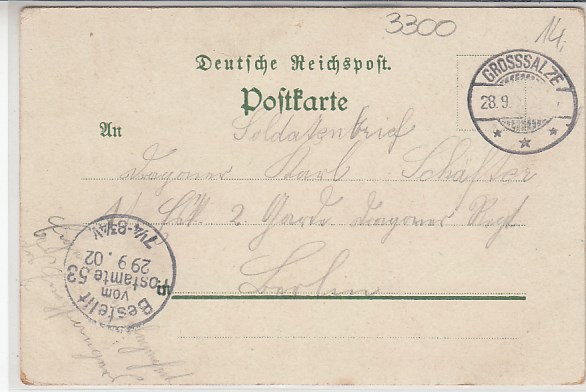 3300
14.
Deutsche Reichspost.
Postkarte
GROSSSALZE
28.9.
An
Soldatenbrief
Dragoner Karl Schäfter
2. Garde Dragoner Regt
Berlin
Bestellt
vom
Postamte 53
29 9. 02
7¼-8¾V